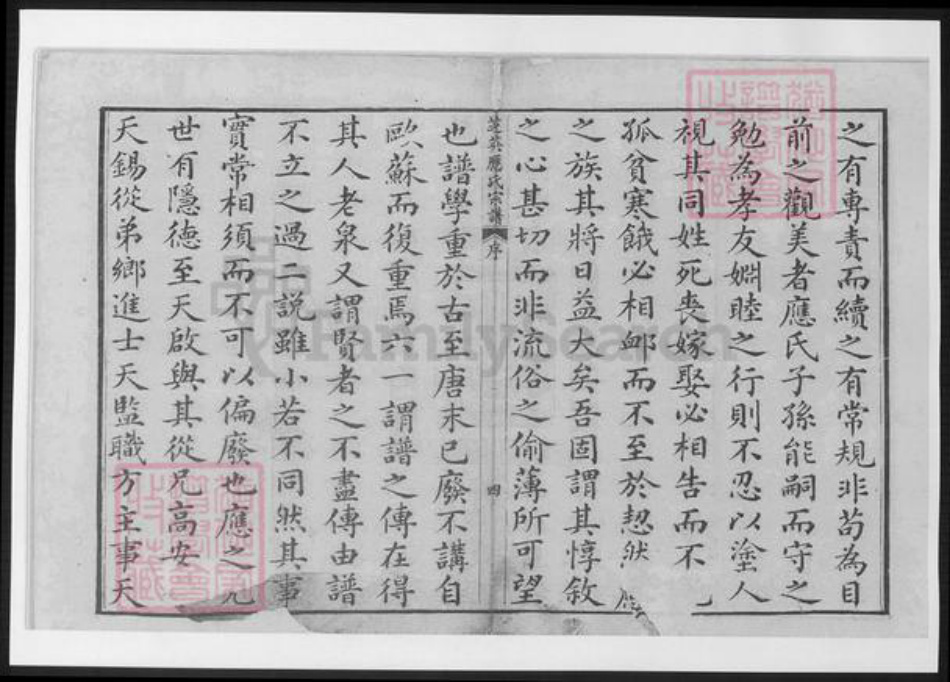 之有專責而續之有常規非苟為目
前之觀美者應氏子孫能嗣而守之
勉為孝友婣睦之行則不忍以塗人
視其同姓死喪嫁娶必相告而不
孤貧寒餓必相卹而不至於恝然
之族其將日益大矣吾固謂其惇敘
之心甚切而非流俗之偷薄所可望
芝英應氏宗譜 序 四
也譜學重於古至唐末已廢不講自
歐蘇而復重焉六一謂譜之傳在得
其人老泉又謂賢者之不盡傳由譜
不立之過二説雖小若不同然其事
實常相須而不可以偏廢也應之先
世有隱德至天啟與其從兄高安
天錫從弟鄉進士天監職方主事天
FamilySearch